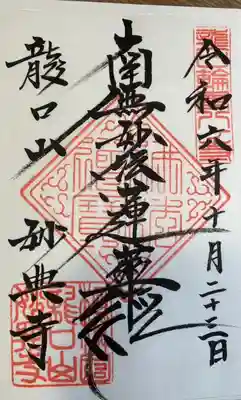 令和六年十月二十三日
南無妙法蓮華経
龍口山 妙典寺
龍口山